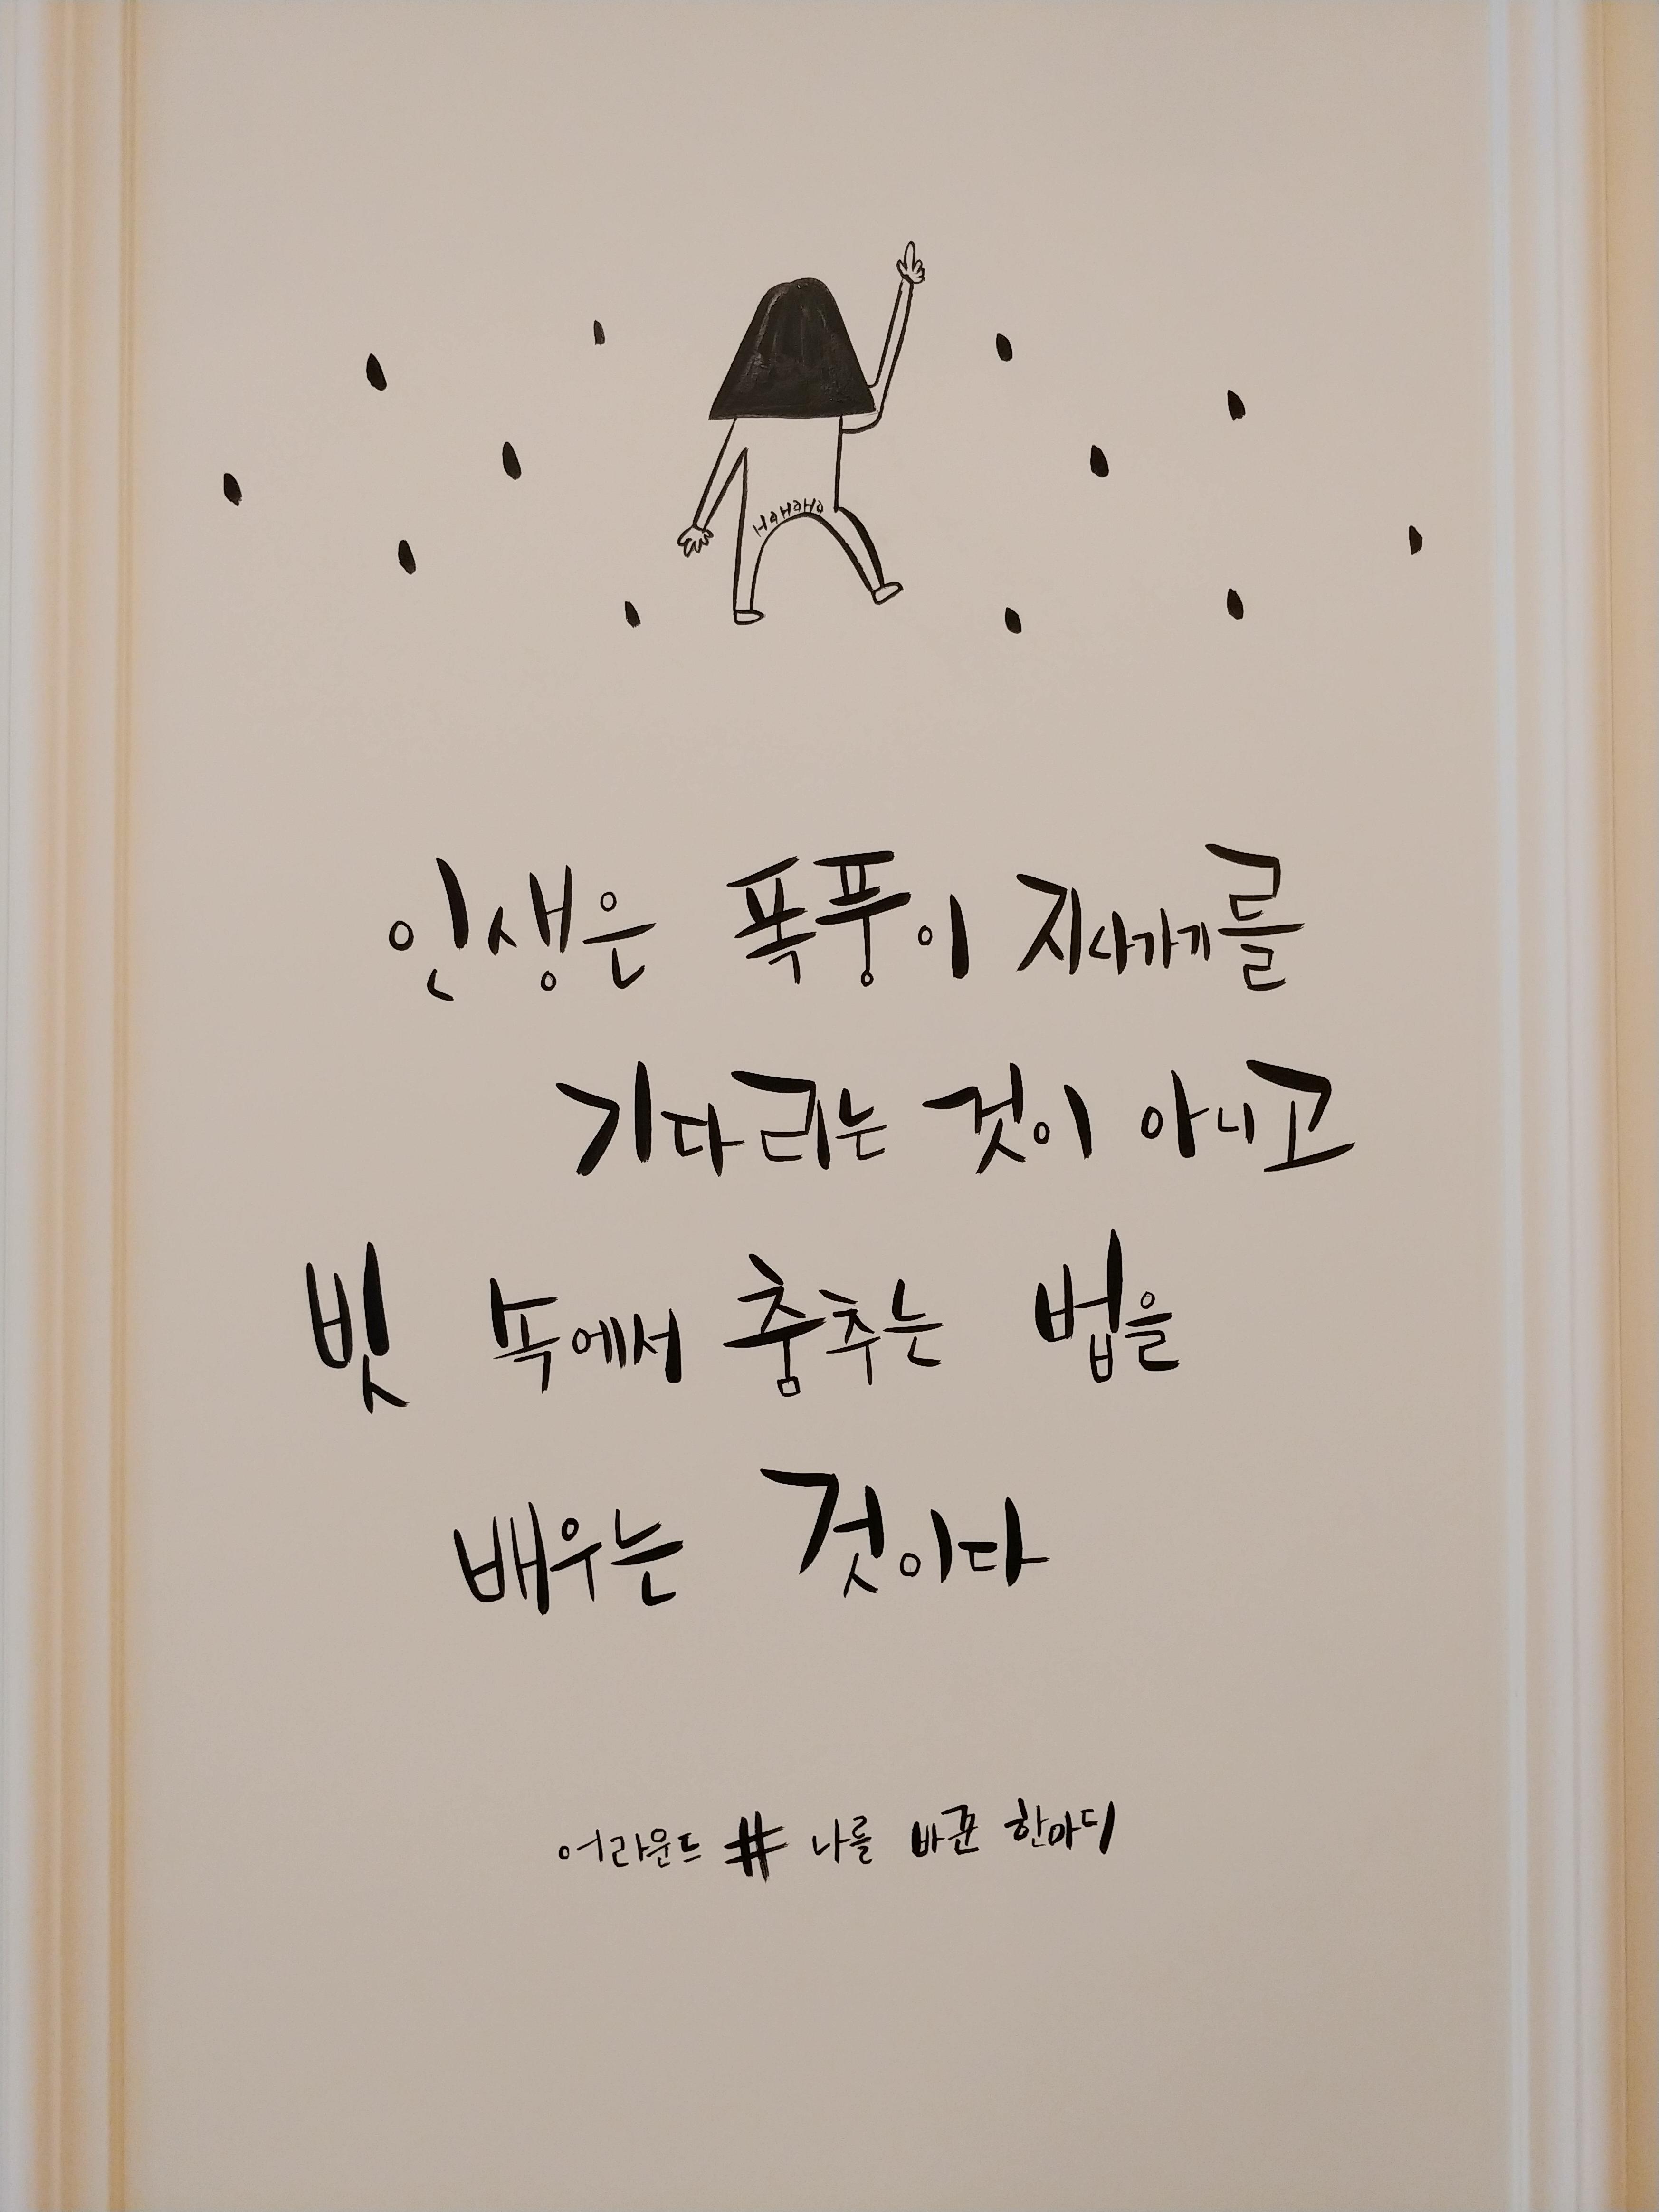 HaHaHa
인생은 폭풍이 지나가기를
기다리는 것이 아니고
빗 속에서 춤추는 법을
배우는 것이다
어라운드 # 나를 바꾼 한마디